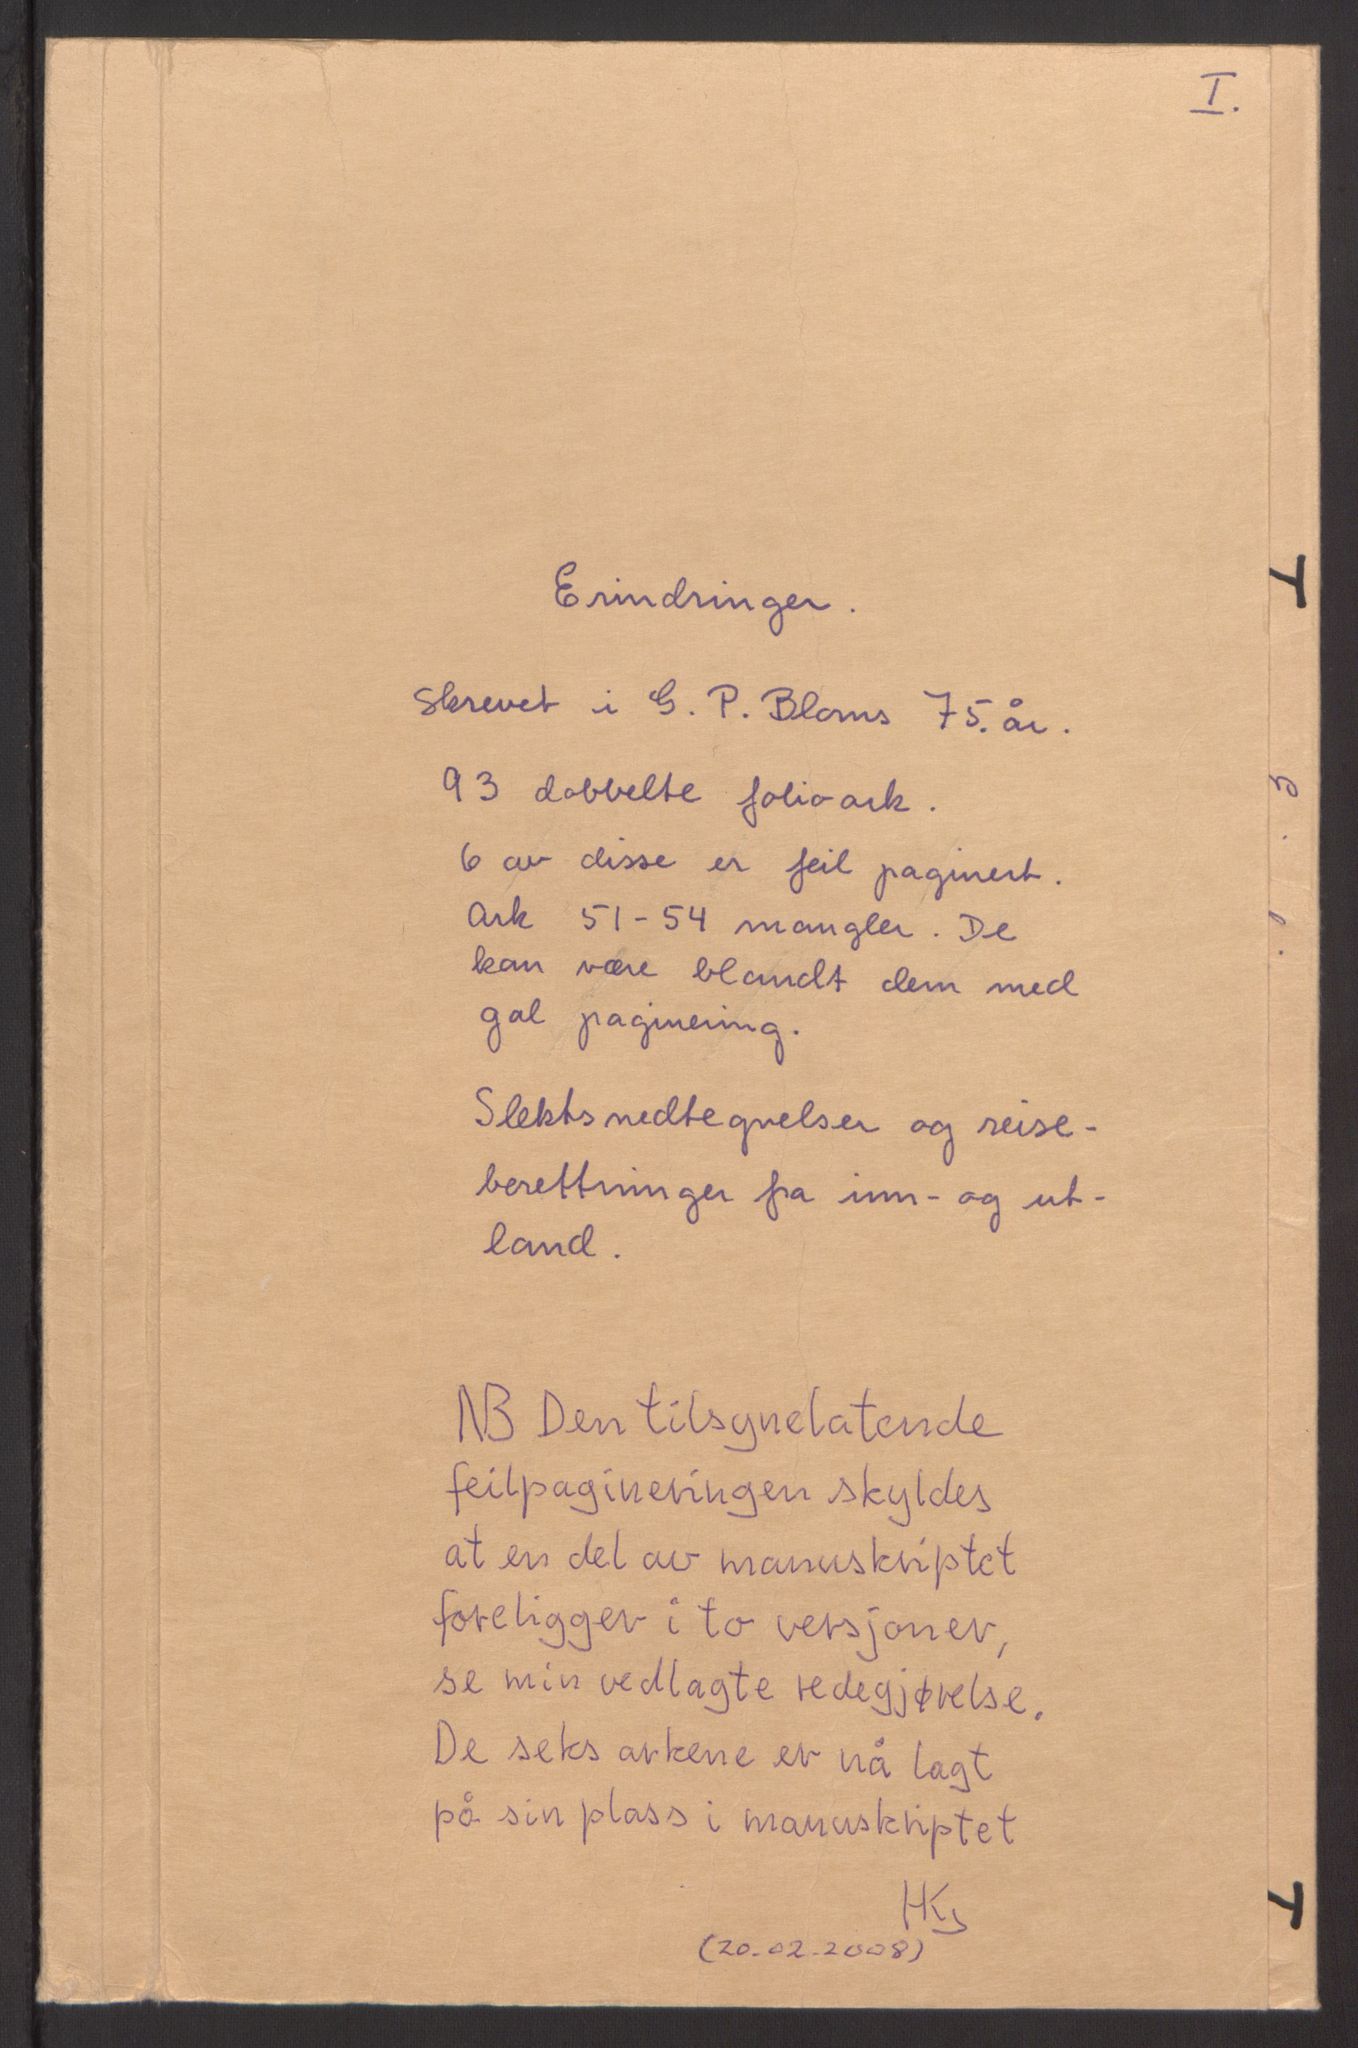 I.
Erindringer.
Skrevet i G. P. Bloms 75. år.
93 dobbelte folioark.
6 av disse er feil paginert.
Ark 51-54 mangler. De
kan være blandt dem med
gal paginering.
Slektsnedtegnelser og reise-
berettninger fra inn- og ut-
land.
NB Den tilsynelatende
feilpagineringen skyldes
at en del av manuskriptet
foreligger i to versjoner,
se min vedlagte redegjørelse.
De seks arkene er nå lagt
på sin plass i manuskriptet
HKs
(20-02-2008)